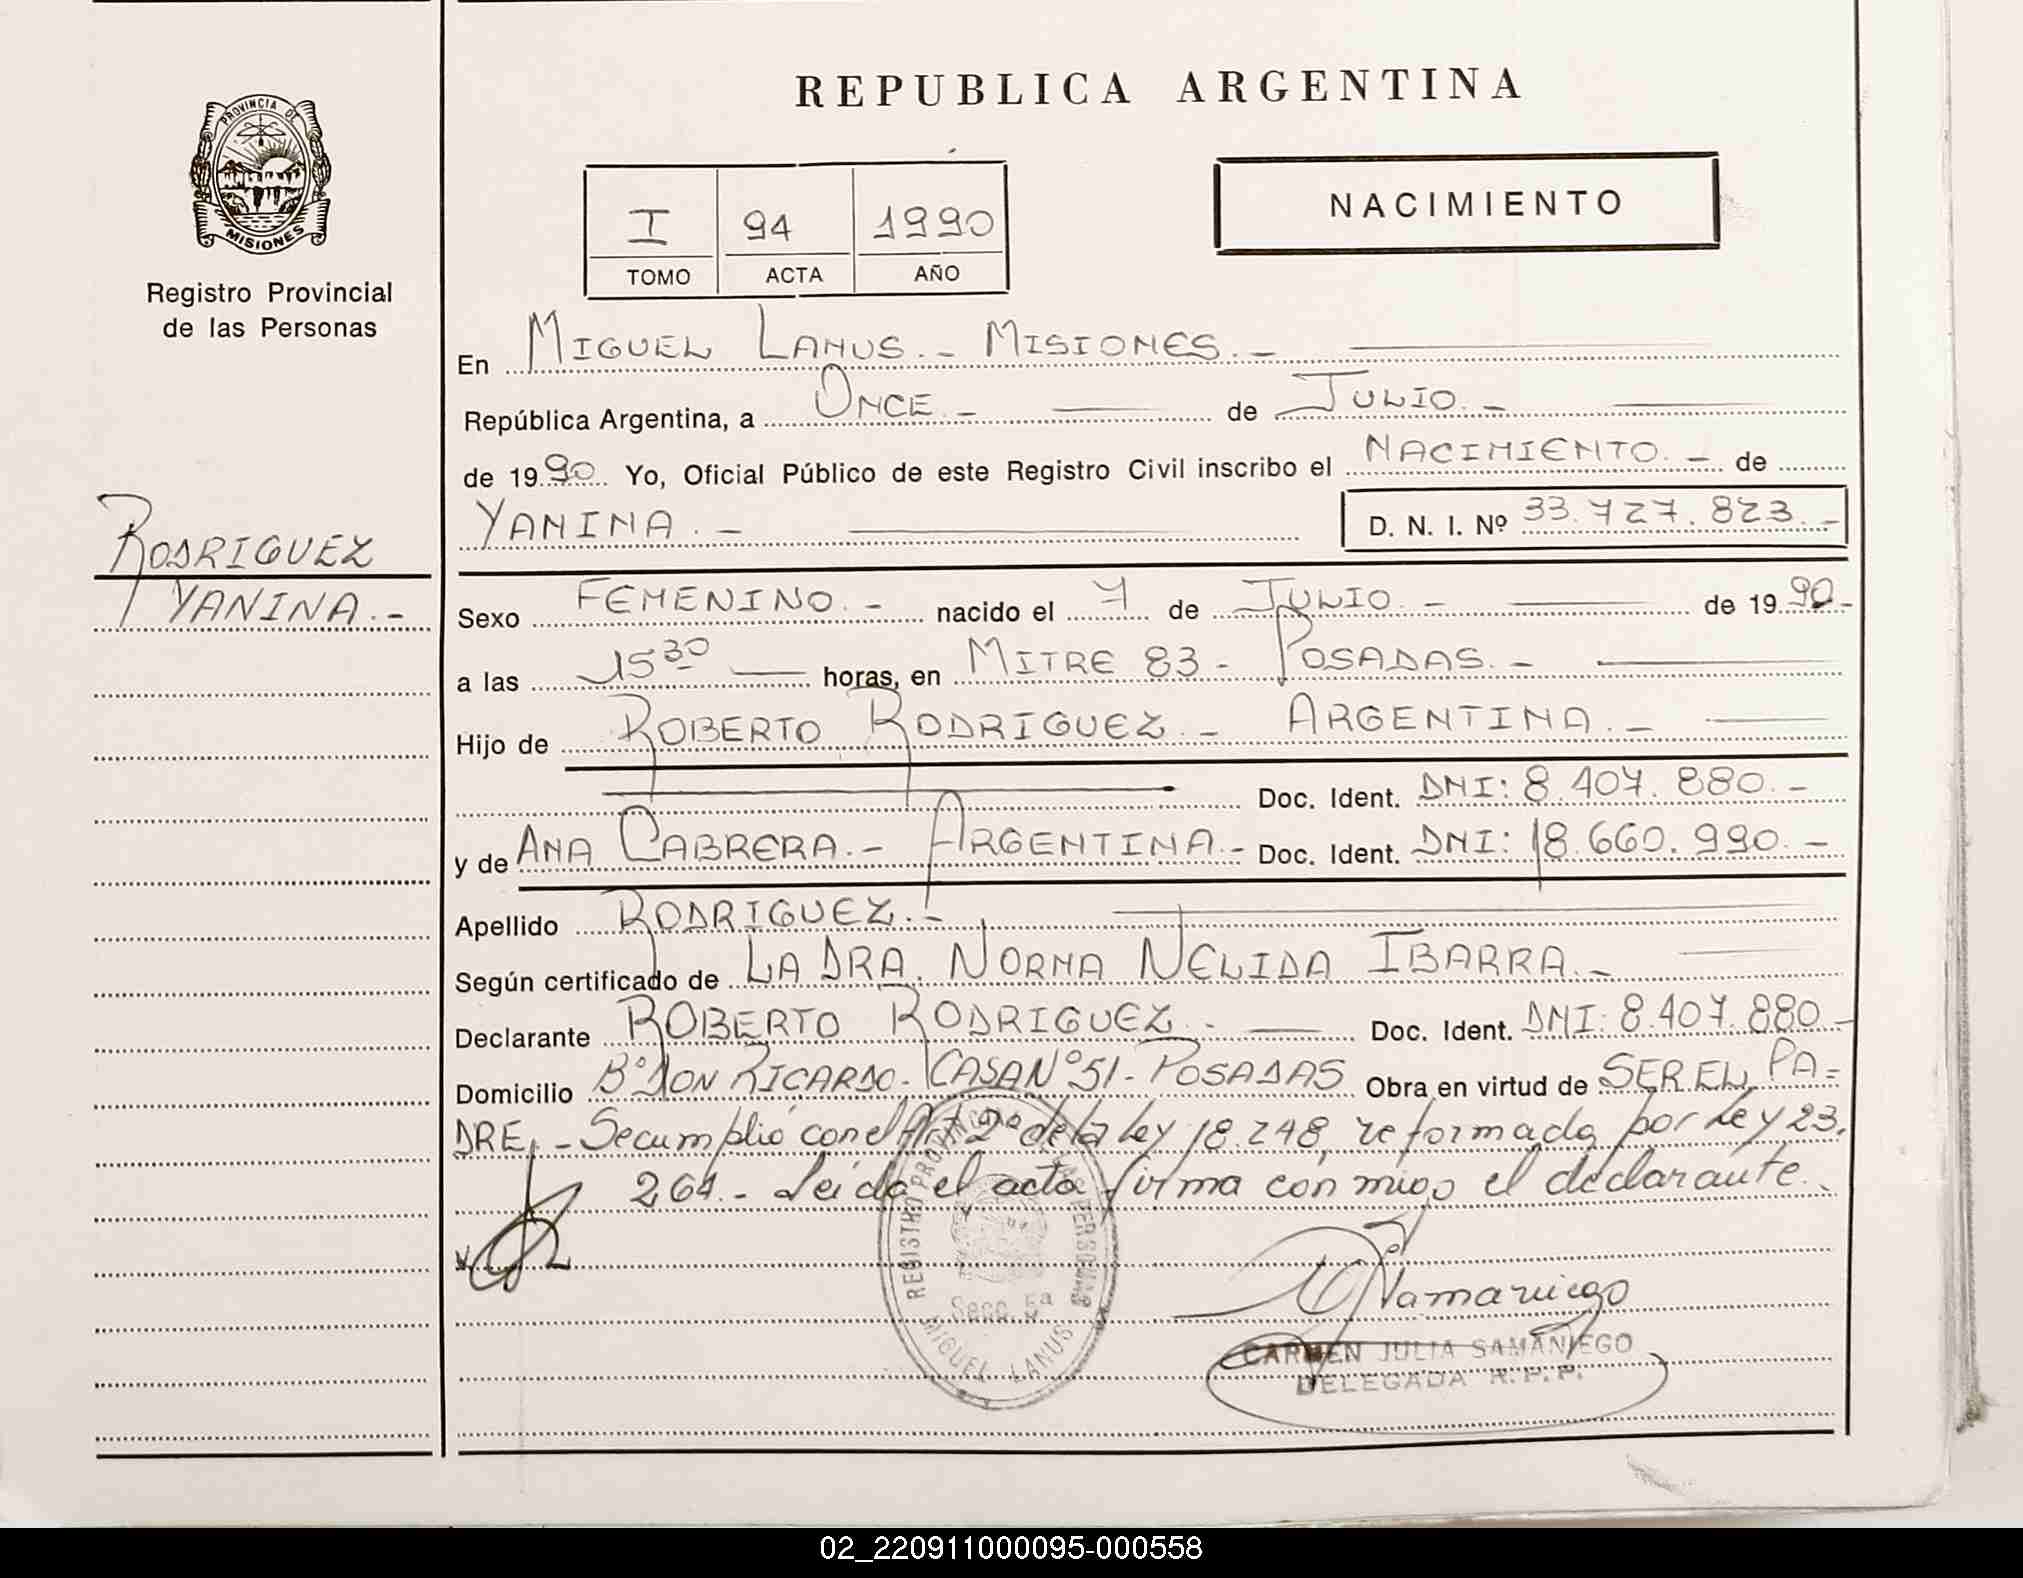 REPUBLICA ARGENTINA
PROVINCIA DE
MISIONES
Registro Provincial
de las Personas
I 94 1990
TOMO ACTA AÑO
NACIMIENTO
En MIGUEL LANUS.- MISIONES.-
República Argentina, a ONCE.- de JULIO.-
de 1990. Yo, Oficial Público de este Registro Civil inscribo el NACIMIENTO.- de
YANINA.- D. N. I. Nº 33.727.823.-
RODRIGUEZ
YANINA.-
Sexo FEMENINO.- nacido el 7 de JULIO.- de 1990-
a las 15 30 horas, en MITRE 83- POSADAS.-
Hijo de ROBERTO RODRIGUEZ.- ARGENTINA.-
Doc. Ident. DNI: 8.407.880.-
y de ANA CABRERA.- ARGENTINA.- Doc. Ident. DNI: 18.660.990.-
Apellido RODRIGUEZ.-
Según certificado de LA DRA. NORMA NELIDA IBARRA.-
Declarante ROBERTO RODRIGUEZ.- Doc. Ident. DNI: 8.407.880-
Domicilio Bº DON RICARDO- CASA Nº 51- POSADAS Obra en virtud de SER EL PA-
DRE.- Se cumplió con el Art 2º de la Ley 18.248, reformada por Ley 23.
264.- Leída el acta firma conmigo el declarante.
REGISTRO PROVINCIAL DE LAS PERSONAS
Secc. 5ª
MIGUEL LANUS
Samaniego
CARMEN JULIA SAMANIEGO
DELEGADA R.P.P.
02_220911000095-000558